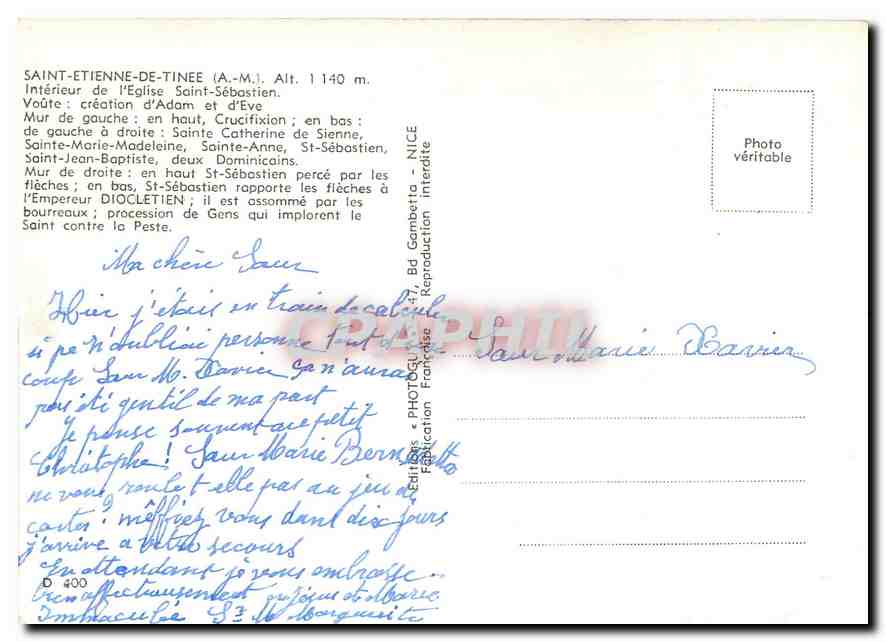 SAINT-ETIENNE-DE-TINEE (A.-M.). Alt. 1 140 m.
Intérieur de l'Eglise Saint-Sébastien.
Voûte : création d'Adam et d'Eve
Mur de gauche : en haut, Crucifixion ; en bas :
de gauche à droite : Sainte Catherine de Sienne,
Sainte-Marie-Madeleine, Sainte-Anne, St-Sébastien,
Saint-Jean-Baptiste, deux Dominicains.
Mur de droite : en haut St-Sébastien percé par les
flèches ; en bas, St-Sébastien rapporte les flèches à
l'Empereur DIOCLETIEN ; il est assommé par les
bourreaux ; procession de Gens qui implorent le
Saint contre la Peste.
Ma chère Sœur
Hier j'étais en train de calculer
si je n'oubliai personne tout d'un
coup Sœur M. Xavier ça n'aurai
pas été gentil de ma part
Je pense souvent au petit
Christophe ! Sœur Marie Bernadette
ne vous roule t elle pas au jeu de
cartes ? méffiez vous dans dix jours
j'arrive a votre secours
En attendant je vous embrasse
bien affectueusement en Jésus et Marie
Immaculée Sr M Marguerite
D 400
Editions « PHOTOGU 47, Bd Gambetta - NICE
Fabrication Française Reproduction interdite
CPAPHIL
Photo
véritable
Sœur Marie Xavier